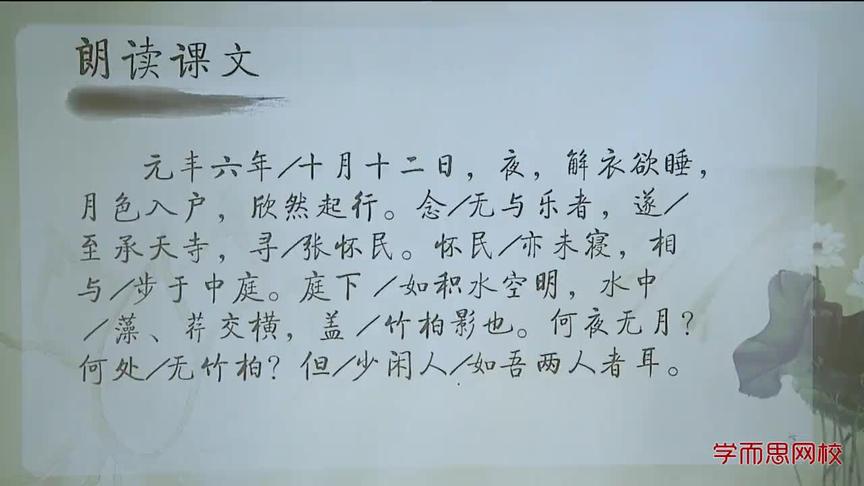 朗读课文
元丰六年/十月十二日，夜，解衣欲睡，
月色入户，欣然起行。念/无与乐者，遂/
至承天寺，寻/张怀民。怀民/亦未寝，相
与/步于中庭。庭下/如积水空明，水中
/藻、荇交横，盖/竹柏影也。何夜无月？
何处/无竹柏？但/少闲人/如吾两人者耳。
学而思网校